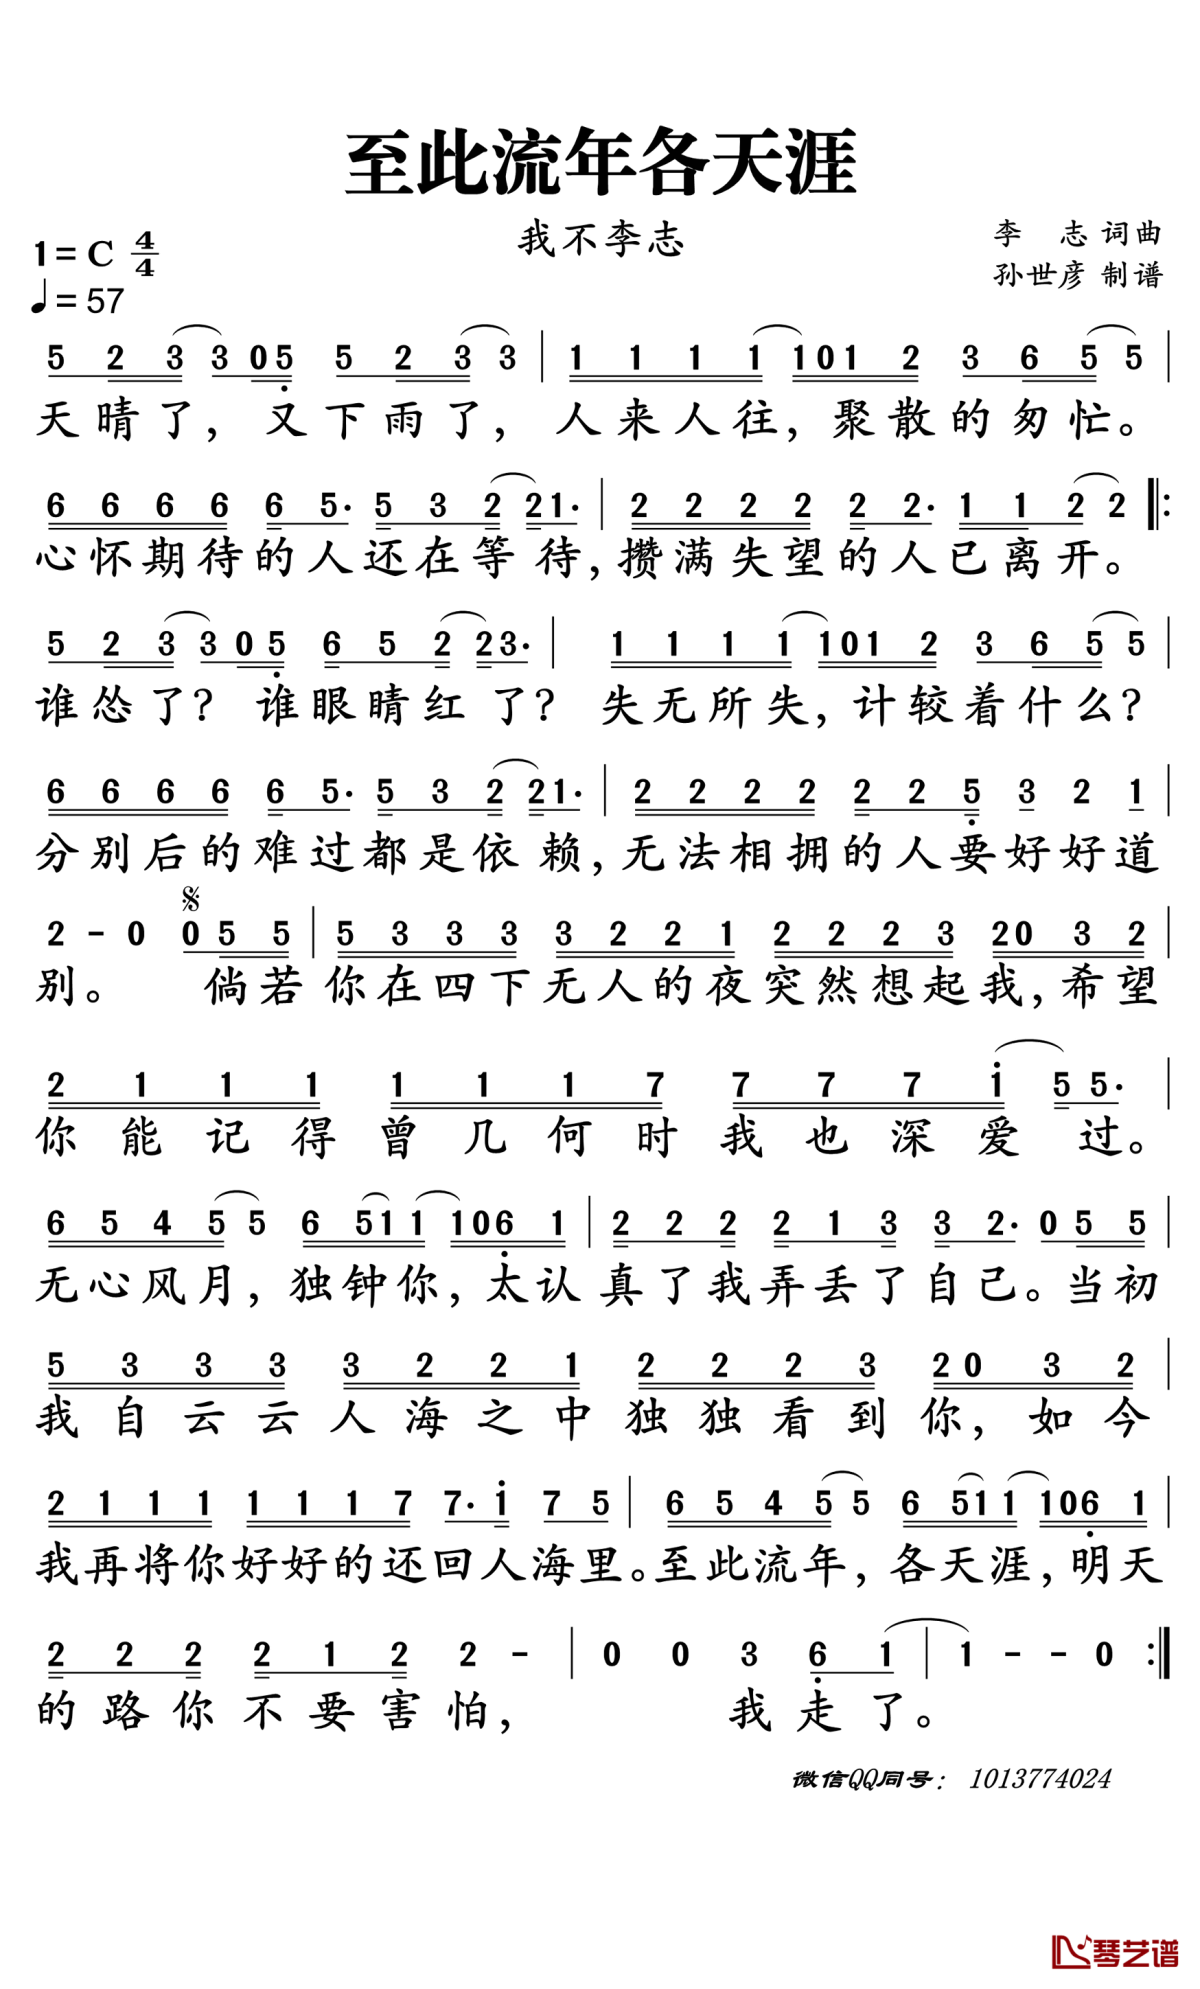 至此流年各天涯
我不李志
李 志 词曲
孙世彦 制谱
1=C 4/4
♩=57
5 2 3 3 0 5 5 2 3 3 | 1 1 1 1 1 0 1 2 3 6 5 5 |
天晴了，又下雨了，人来人往，聚散的匆忙。
6 6 6 6 6 5· 5 3 2 2 1· | 2 2 2 2 2 2· 1 1 2 2 ‖:
心怀期待的人还在等待，攒满失望的人已离开。
5 2 3 3 0 5 6 5 2 2 3· | 1 1 1 1 1 0 1 2 3 6 5 5 |
谁怂了？谁眼睛红了？失无所失，计较着什么？
6 6 6 6 6 5· 5 3 2 2 1· | 2 2 2 2 2 2 5 3 2 1 |
分别后的难过都是依赖，无法相拥的人要好好道
2 - 0 0 5 5 | 5 3 3 3 3 2 2 1 2 2 2 3 2 0 3 2 |
别。倘若你在四下无人的夜突然想起我，希望
2 1 1 1 1 1 1 7 7 7 7 1 5 5· |
你能记得曾几何时我也深爱过。
6 5 4 5 5 6 5 1 1 1 0 6 1 | 2 2 2 2 1 3 3 2· 0 5 5 |
无心风月，独钟你，太认真了我弄丢了自己。当初
5 3 3 3 3 2 2 1 2 2 2 3 2 0 3 2 |
我自云云人海之中独独看到你，如今
2 1 1 1 1 1 1 7 7· 1 7 5 | 6 5 4 5 5 6 5 1 1 1 0 6 1 |
我再将你好好的还回人海里。至此流年，各天涯，明天
2 2 2 2 1 2 2 - | 0 0 3 6 1 | 1 - - 0 :‖
的路你不要害怕，我走了。
微信QQ同号： 1013774024
琴艺谱